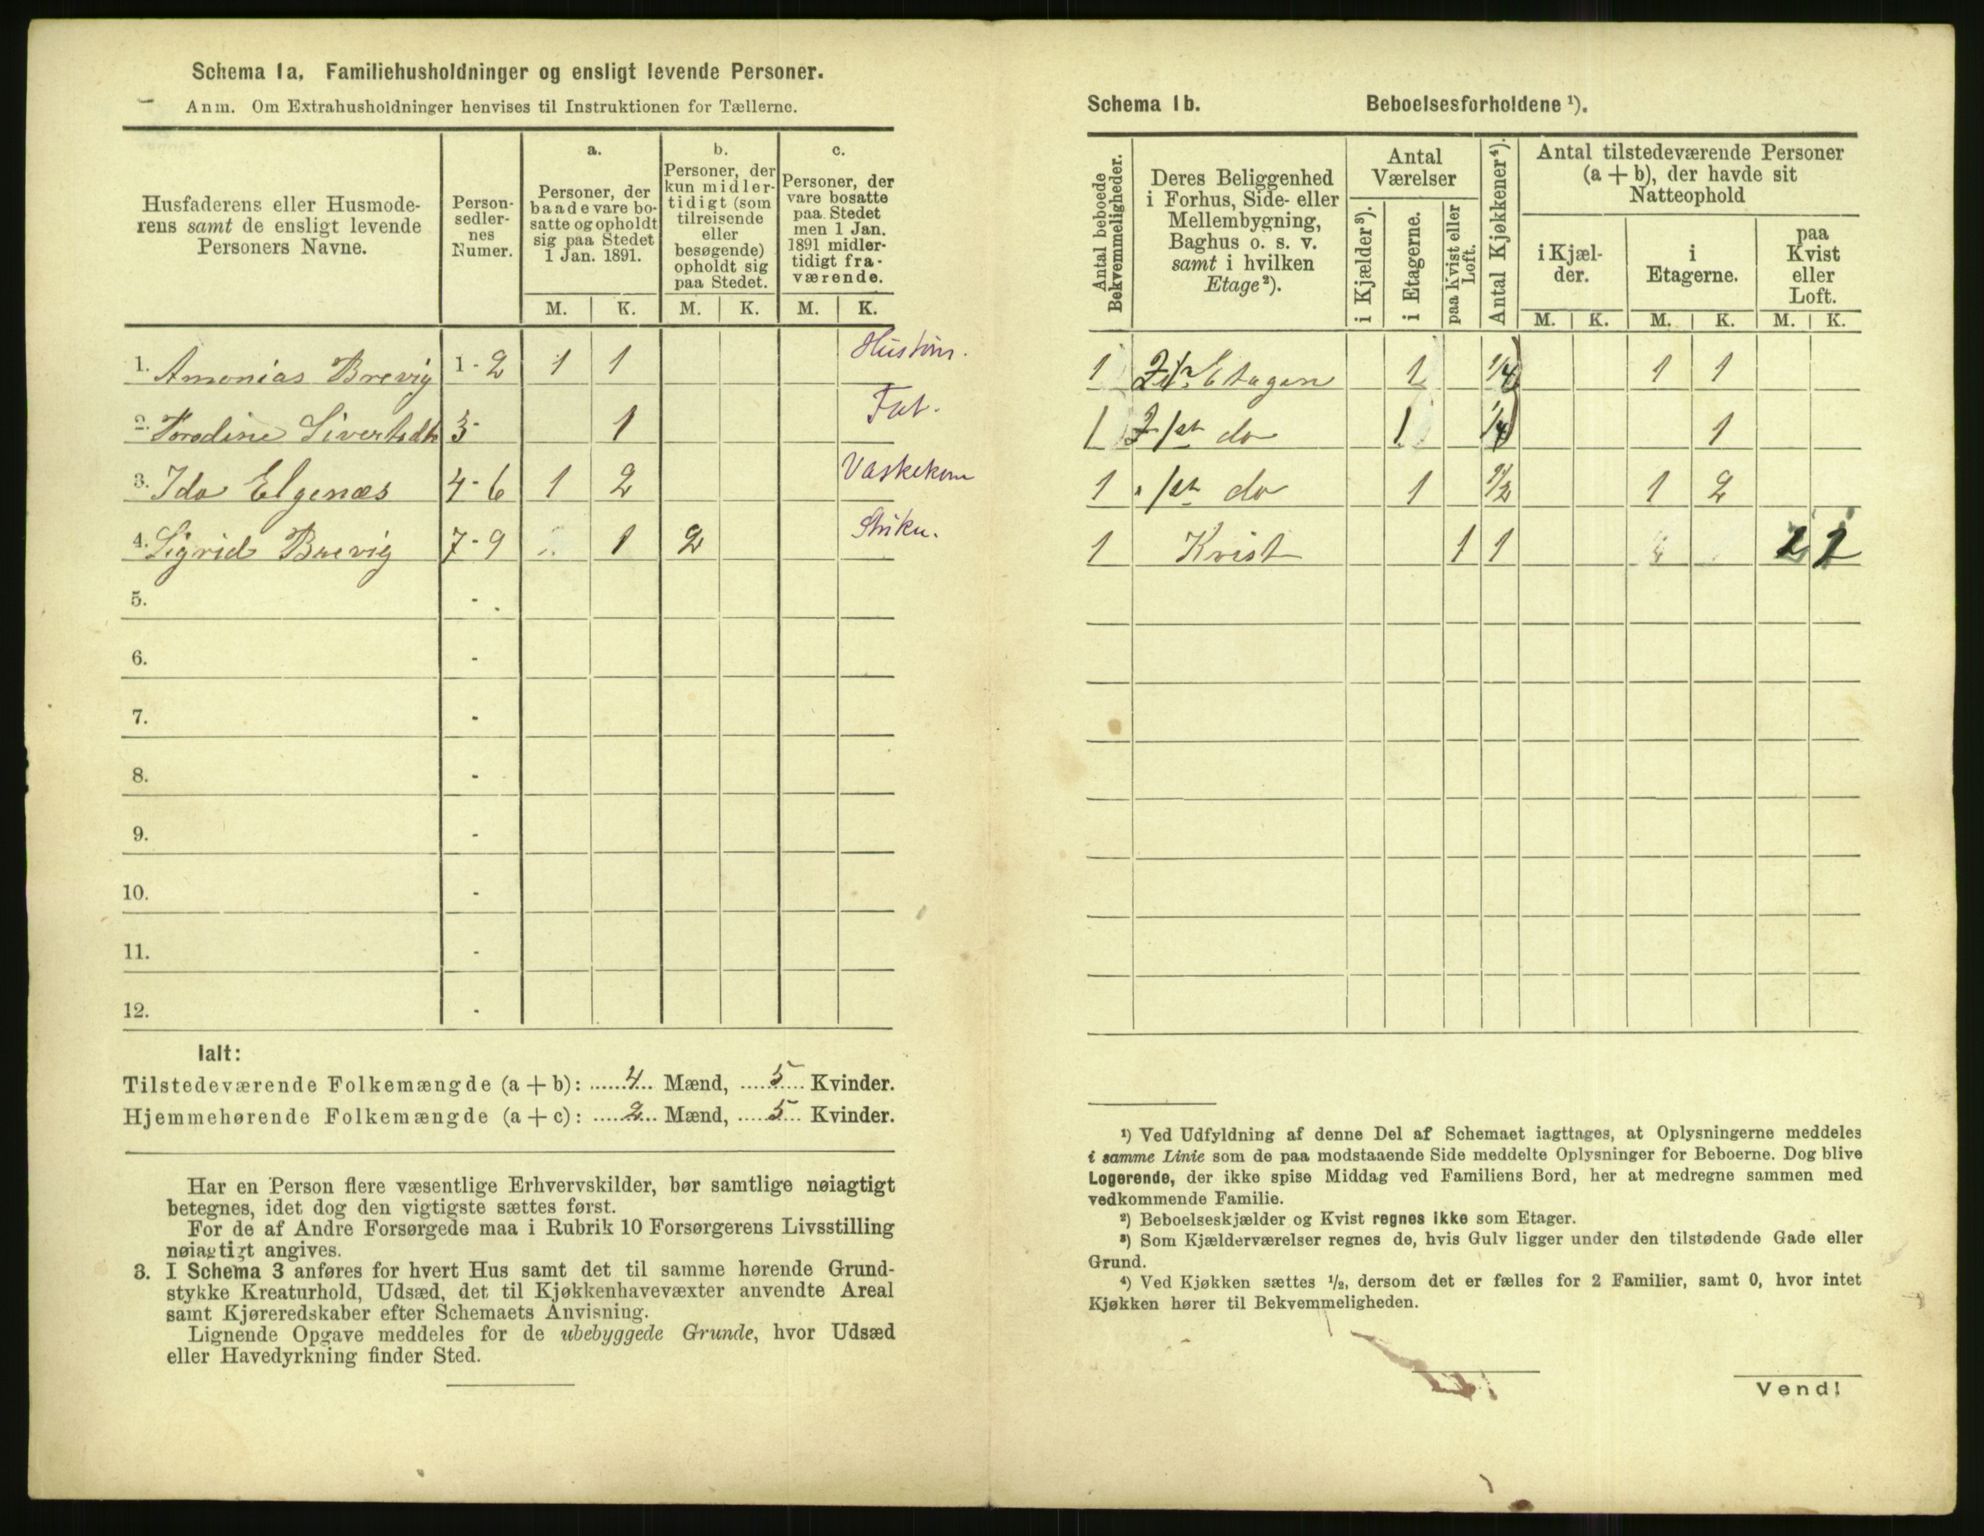 Schema 1a. Familiehusholdninger og ensligt levende Personer.
Anm. Om Extrahusholdninger henvises til Instruktionen for Tællerne.
Husfaderens eller Husmoderens samt de ensligt levende Personers Navne.
Person-sedler-nes Numer.
a. Personer, der baade vare bosatte og opholdt sig paa Stedet 1 Jan. 1891.
b. Personer, der kun midlertidigt (som tilreisende eller besøgende) opholdt sig paa Stedet.
c. Personer, der vare bosatte paa Stedet men 1 Jan. 1891 midlertidigt fraværende.
M. K. M. K. M. K.
1. Amonias Brevig 1-2 1 1
2. Torodine Sivertsdtr 3 1 Fat.
3. Ida Elgenæs 4-6 1 2 Vaskekone
4. Sigrid Brevig 7-9 1 2
5. -
6. -
7. -
8. -
9. -
10. -
11. -
12. -
Ialt:
Tilstedeværende Folkemængde (a+b): 4 Mænd, 5 Kvinder.
Hjemmehørende Folkemængde (a+c): 2 Mænd, 5 Kvinder.
Har en Person flere væsentlige Erhvervskilder, bør samtlige nøiagtigt
betegnes, idet dog den vigtigste sættes først.
For de af Andre Forsørgede maa i Rubrik 10 Forsørgerens Livsstilling
nøiagtigt angives.
3. I Schema 3 anføres for hvert Hus samt det til samme hørende Grund-
stykke Kreaturhold, Udsæd, det til Kjøkkenhavevæxter anvendte Areal
samt Kjøreredskaber efter Schemaets Anvisning.
Lignende Opgave meddeles for de ubebyggede Grunde, hvor Udsæd
eller Havedyrkning finder Sted.
Schema 1b. Beboelsesforholdene ¹).
Antal beboede Bekvemmeligheder.
Deres Beliggenhed i Forhus, Side- eller Mellembygning, Baghus o. s. v. samt i hvilken Etage²).
Antal Værelser
i Kjælder³).
i Etagerne.
paa Kvist eller Loft.
Antal Kjøkkener⁴).
Antal tilstedeværende Personer (a+b), der havde sit Natteophold
i Kjælder.
i Etagerne.
paa Kvist eller Loft.
M. K. M. K. M. K.
1 Etagen 1 1/4 1 1
1 1st do 1 1/4 1
1 1st do 1 1/2 1 2
1 Kvist 1 1 2 1
¹) Ved Udfyldning af denne Del af Schemaet iagttages, at Oplysningerne meddeles
i samme Linie som de paa modstaaende Side meddelte Oplysninger for Beboerne. Dog blive
Logerende, der ikke spise Middag ved Familiens Bord, her at medregne sammen med
vedkommende Familie.
²) Beboelseskjælder og Kvist regnes ikke som Etager.
³) Som Kjælderværelser regnes de, hvis Gulv ligger under den tilstødende Gade eller
Grund.
⁴) Ved Kjøkken sættes ½, dersom det er fælles for 2 Familier, samt 0, hvor intet
Kjøkken hører til Bekvemmeligheden.
Vend!